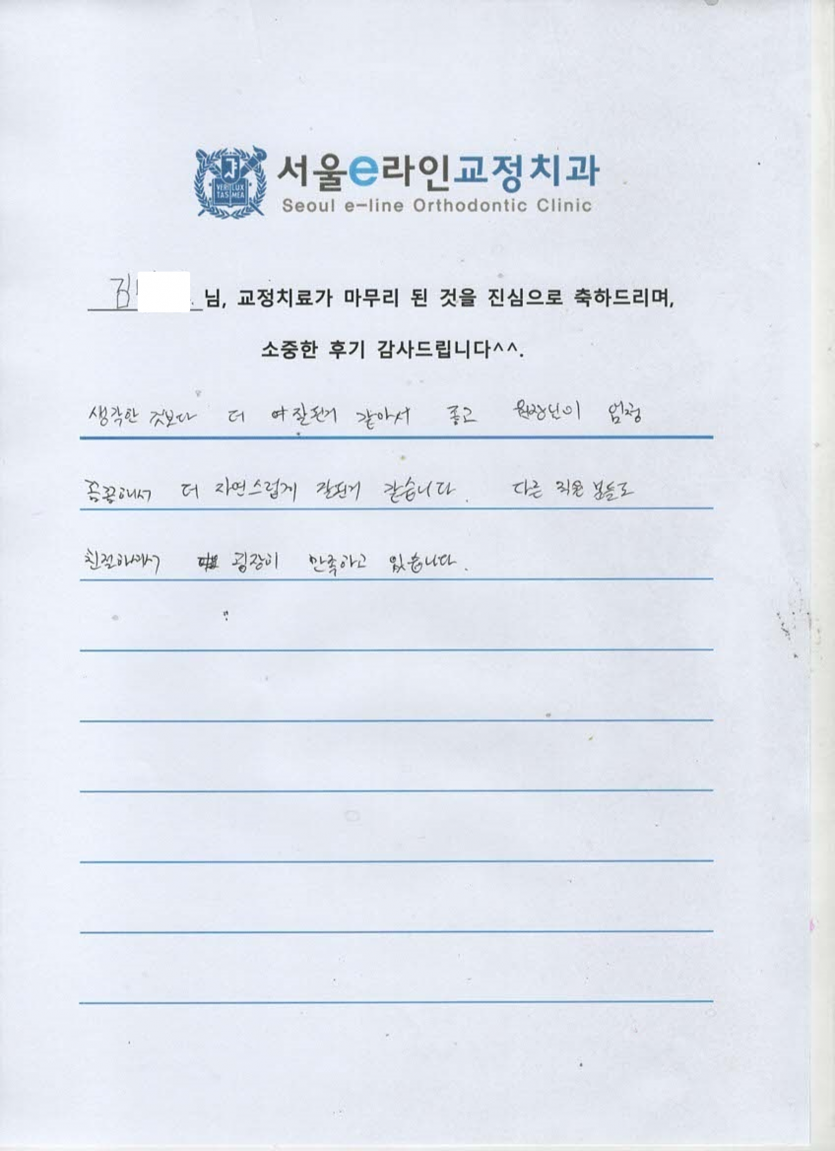 서울e라인교정치과
Seoul e-line Orthodontic Clinic
김 님, 교정치료가 마무리 된 것을 진심으로 축하드리며,
소중한 후기 감사드립니다^^.
생각한 것보다 더 잘된거 같아서 좋고 원장님이 엄청
꼼꼼해서 더 자연스럽게 잘된거 같습니다. 다른 직원 분들도
친절하셔서 굉장히 만족하고 있습니다.